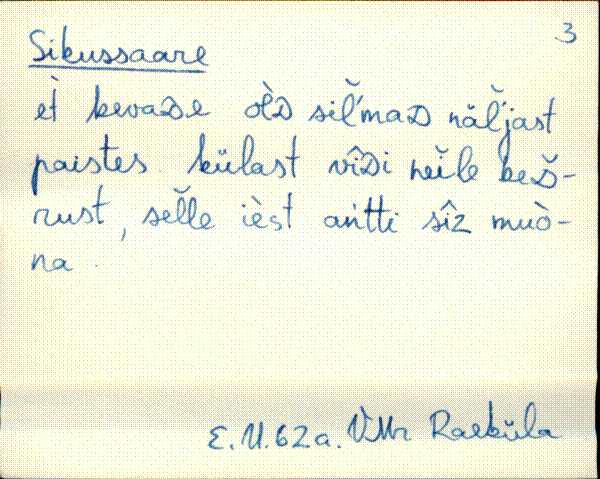 3
Sikussaare
et̀ kevaᴅe ol̀ᴅ sil̆'maᴅ näl̆'jast
paistes. külast vîᴅi neile keᴅ̆-
rust, sel̆le ièst an̆tti sîz muò-
na.
E.U. 62 a. VMr Raeküla